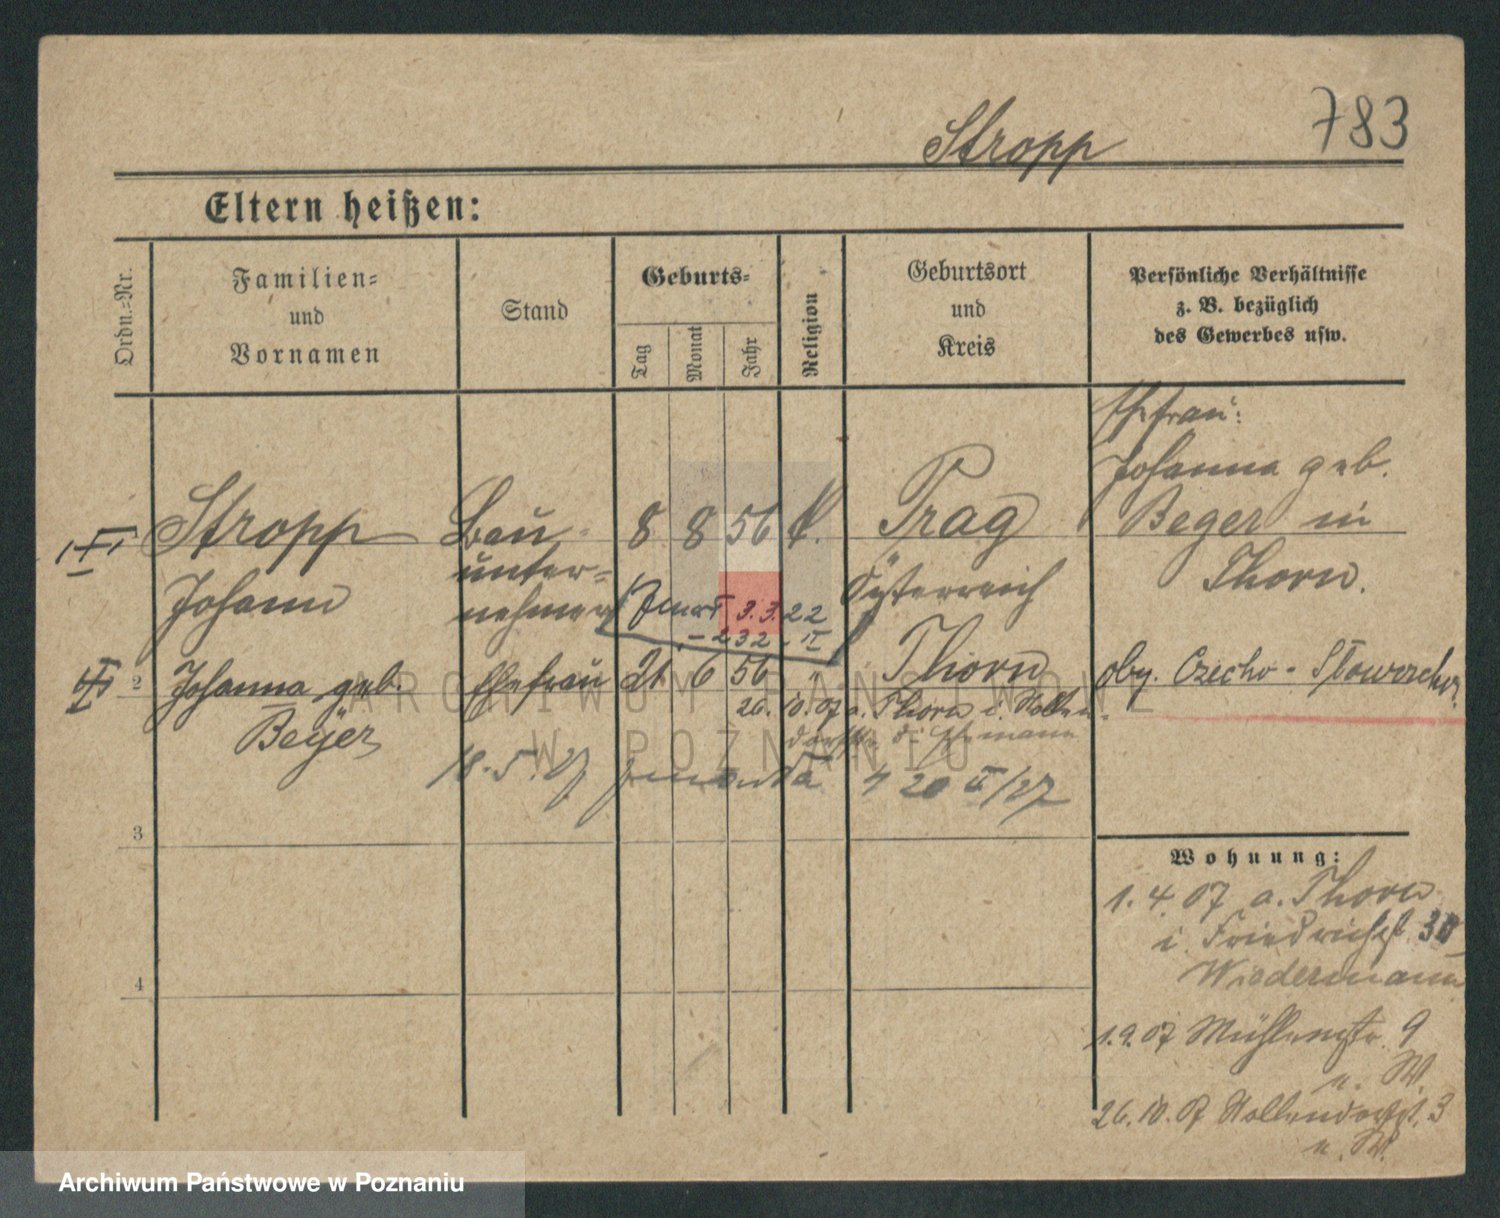 783
Stropp
Eltern heißen:
Ordn.-Nr.
Familien-
und
Vornamen
Stand
Geburts-
Tag
Monat
Jahr
Religion
Geburtsort
und
Kreis
Persönliche Verhältnisse
z. B. bezüglich
des Gewerbes usw.
Ehefrau:
Johanna geb.
Beyer in
Thorn.
Stropp
Johann
Bau-
unter-
nehmer
8 8 56 k.
Prag
Österreich
3.3.22
2
Johanna geb.
Beyer
Ehefrau
21 6 56 "
Thorn
oby. Czecho-Słowacka
26.10.07 a. Thorn i.
18.5.07
20 II/27
3
4
Wohnung:
1.4.07 a. Thorn
i. Friedrichst. 30
Wiedermann
1.9.07 Mühlenstr. 9
u. W.
26.10.07 Nollendorfst. 3
u. W.
ARCHIWUM PAŃSTWOWE
W POZNANIU
Archiwum Państwowe w Poznaniu